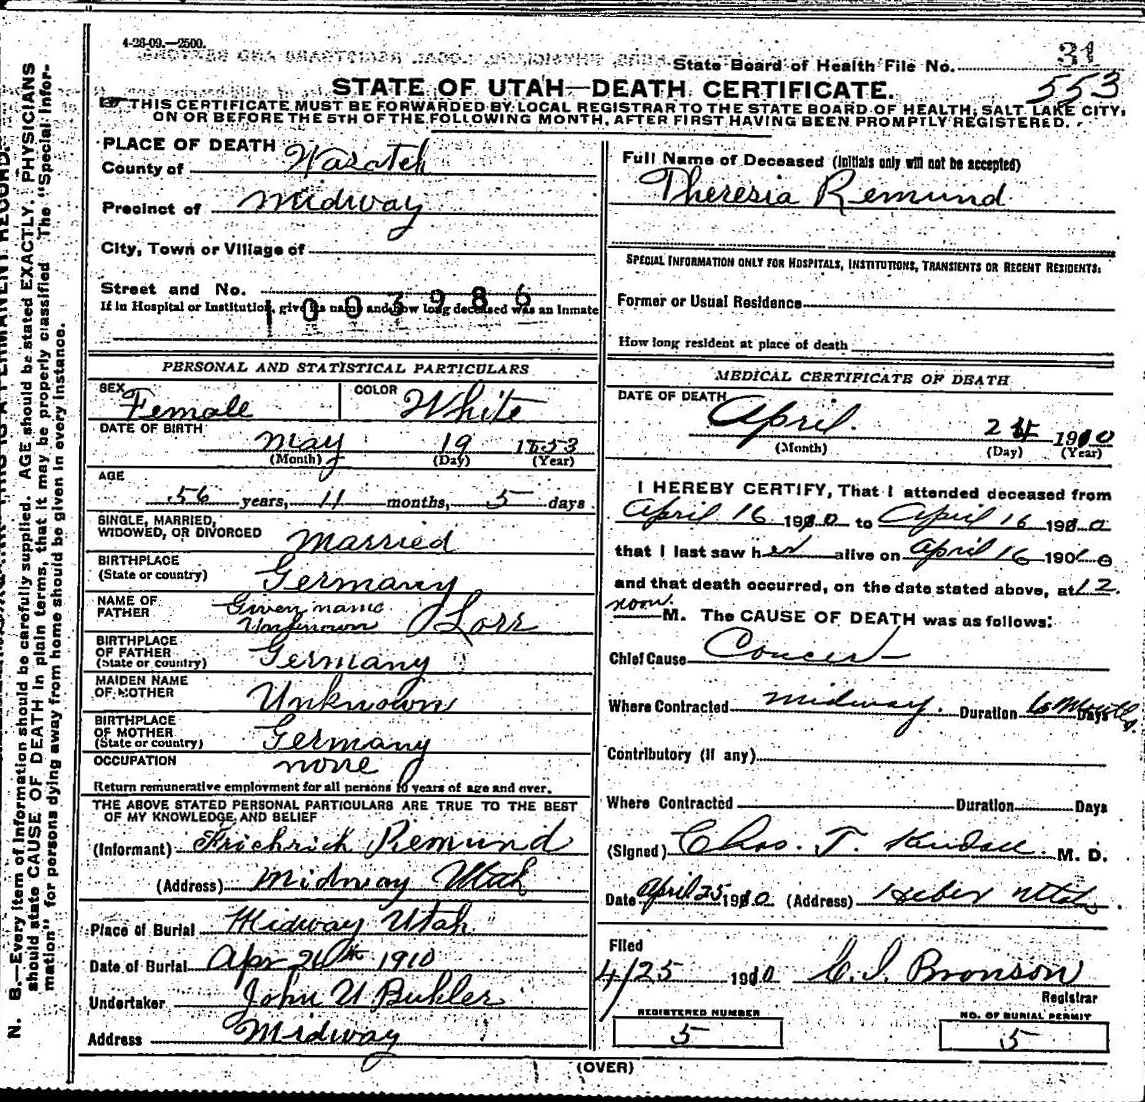 4-26-09.—2500.
31
State Board of Health File No.
553
STATE OF UTAH—DEATH CERTIFICATE.
THIS CERTIFICATE MUST BE FORWARDED BY LOCAL REGISTRAR TO THE STATE BOARD OF HEALTH, SALT LAKE CITY,
ON OR BEFORE THE 5TH OF THE FOLLOWING MONTH, AFTER FIRST HAVING BEEN PROMPTLY REGISTERED.
PLACE OF DEATH
County of Wasatch
Precinct of Midway
City, Town or Village of
Street and No.
1003986
If in Hospital or Institution, give its name and how long deceased was an Inmate
PERSONAL AND STATISTICAL PARTICULARS
SEX Female COLOR White
DATE OF BIRTH
May 19 1853
(Month) (Day) (Year)
AGE
56 years, 11 months, 5 days
SINGLE, MARRIED,
WIDOWED, OR DIVORCED Married
BIRTHPLACE
(State or country) Germany
NAME OF
FATHER Given name
Unknown Lorr
BIRTHPLACE
OF FATHER
(State or country) Germany
MAIDEN NAME
OF MOTHER Unknown
BIRTHPLACE
OF MOTHER
(State or country) Germany
OCCUPATION none
Return remunerative employment for all persons 10 years of age and over.
THE ABOVE STATED PERSONAL PARTICULARS ARE TRUE TO THE BEST
OF MY KNOWLEDGE AND BELIEF
(Informant) Frichrich Remund
(Address) Midway Utah
Place of Burial Midway Utah
Date of Burial Apr 26th 1910
Undertaker John U Buhler
Address Midway
Full Name of Deceased (Initials only will not be accepted)
Theresia Remund
SPECIAL INFORMATION ONLY FOR HOSPITALS, INSTITUTIONS, TRANSIENTS OR RECENT RESIDENTS:
Former or Usual Residence
How long resident at place of death
MEDICAL CERTIFICATE OF DEATH
DATE OF DEATH
April 24 1910
(Month) (Day) (Year)
I HEREBY CERTIFY, That I attended deceased from
April 16 1910 to April 16 1910
that I last saw her alive on April 16 1910
and that death occurred, on the date stated above, at 12
noon. M. The CAUSE OF DEATH was as follows:
Chief Cause Cancer
Where Contracted Midway. Duration 6 Months Days
Contributory (if any)
Where Contracted Duration Days
(Signed) Chas. T. M. D.
Date April 25 1910 (Address) Heber Utah
Filed
4/25 1910 C. I. Bronson
Registrar
REGISTERED NUMBER
5
NO. OF BURIAL PERMIT
5
(OVER)
N. B.—Every item of information should be carefully supplied. AGE should be stated EXACTLY. PHYSICIANS
should state CAUSE OF DEATH in plain terms, that it may be properly classified. The "Special Infor-
mation" for persons dying away from home should be given in every instance.